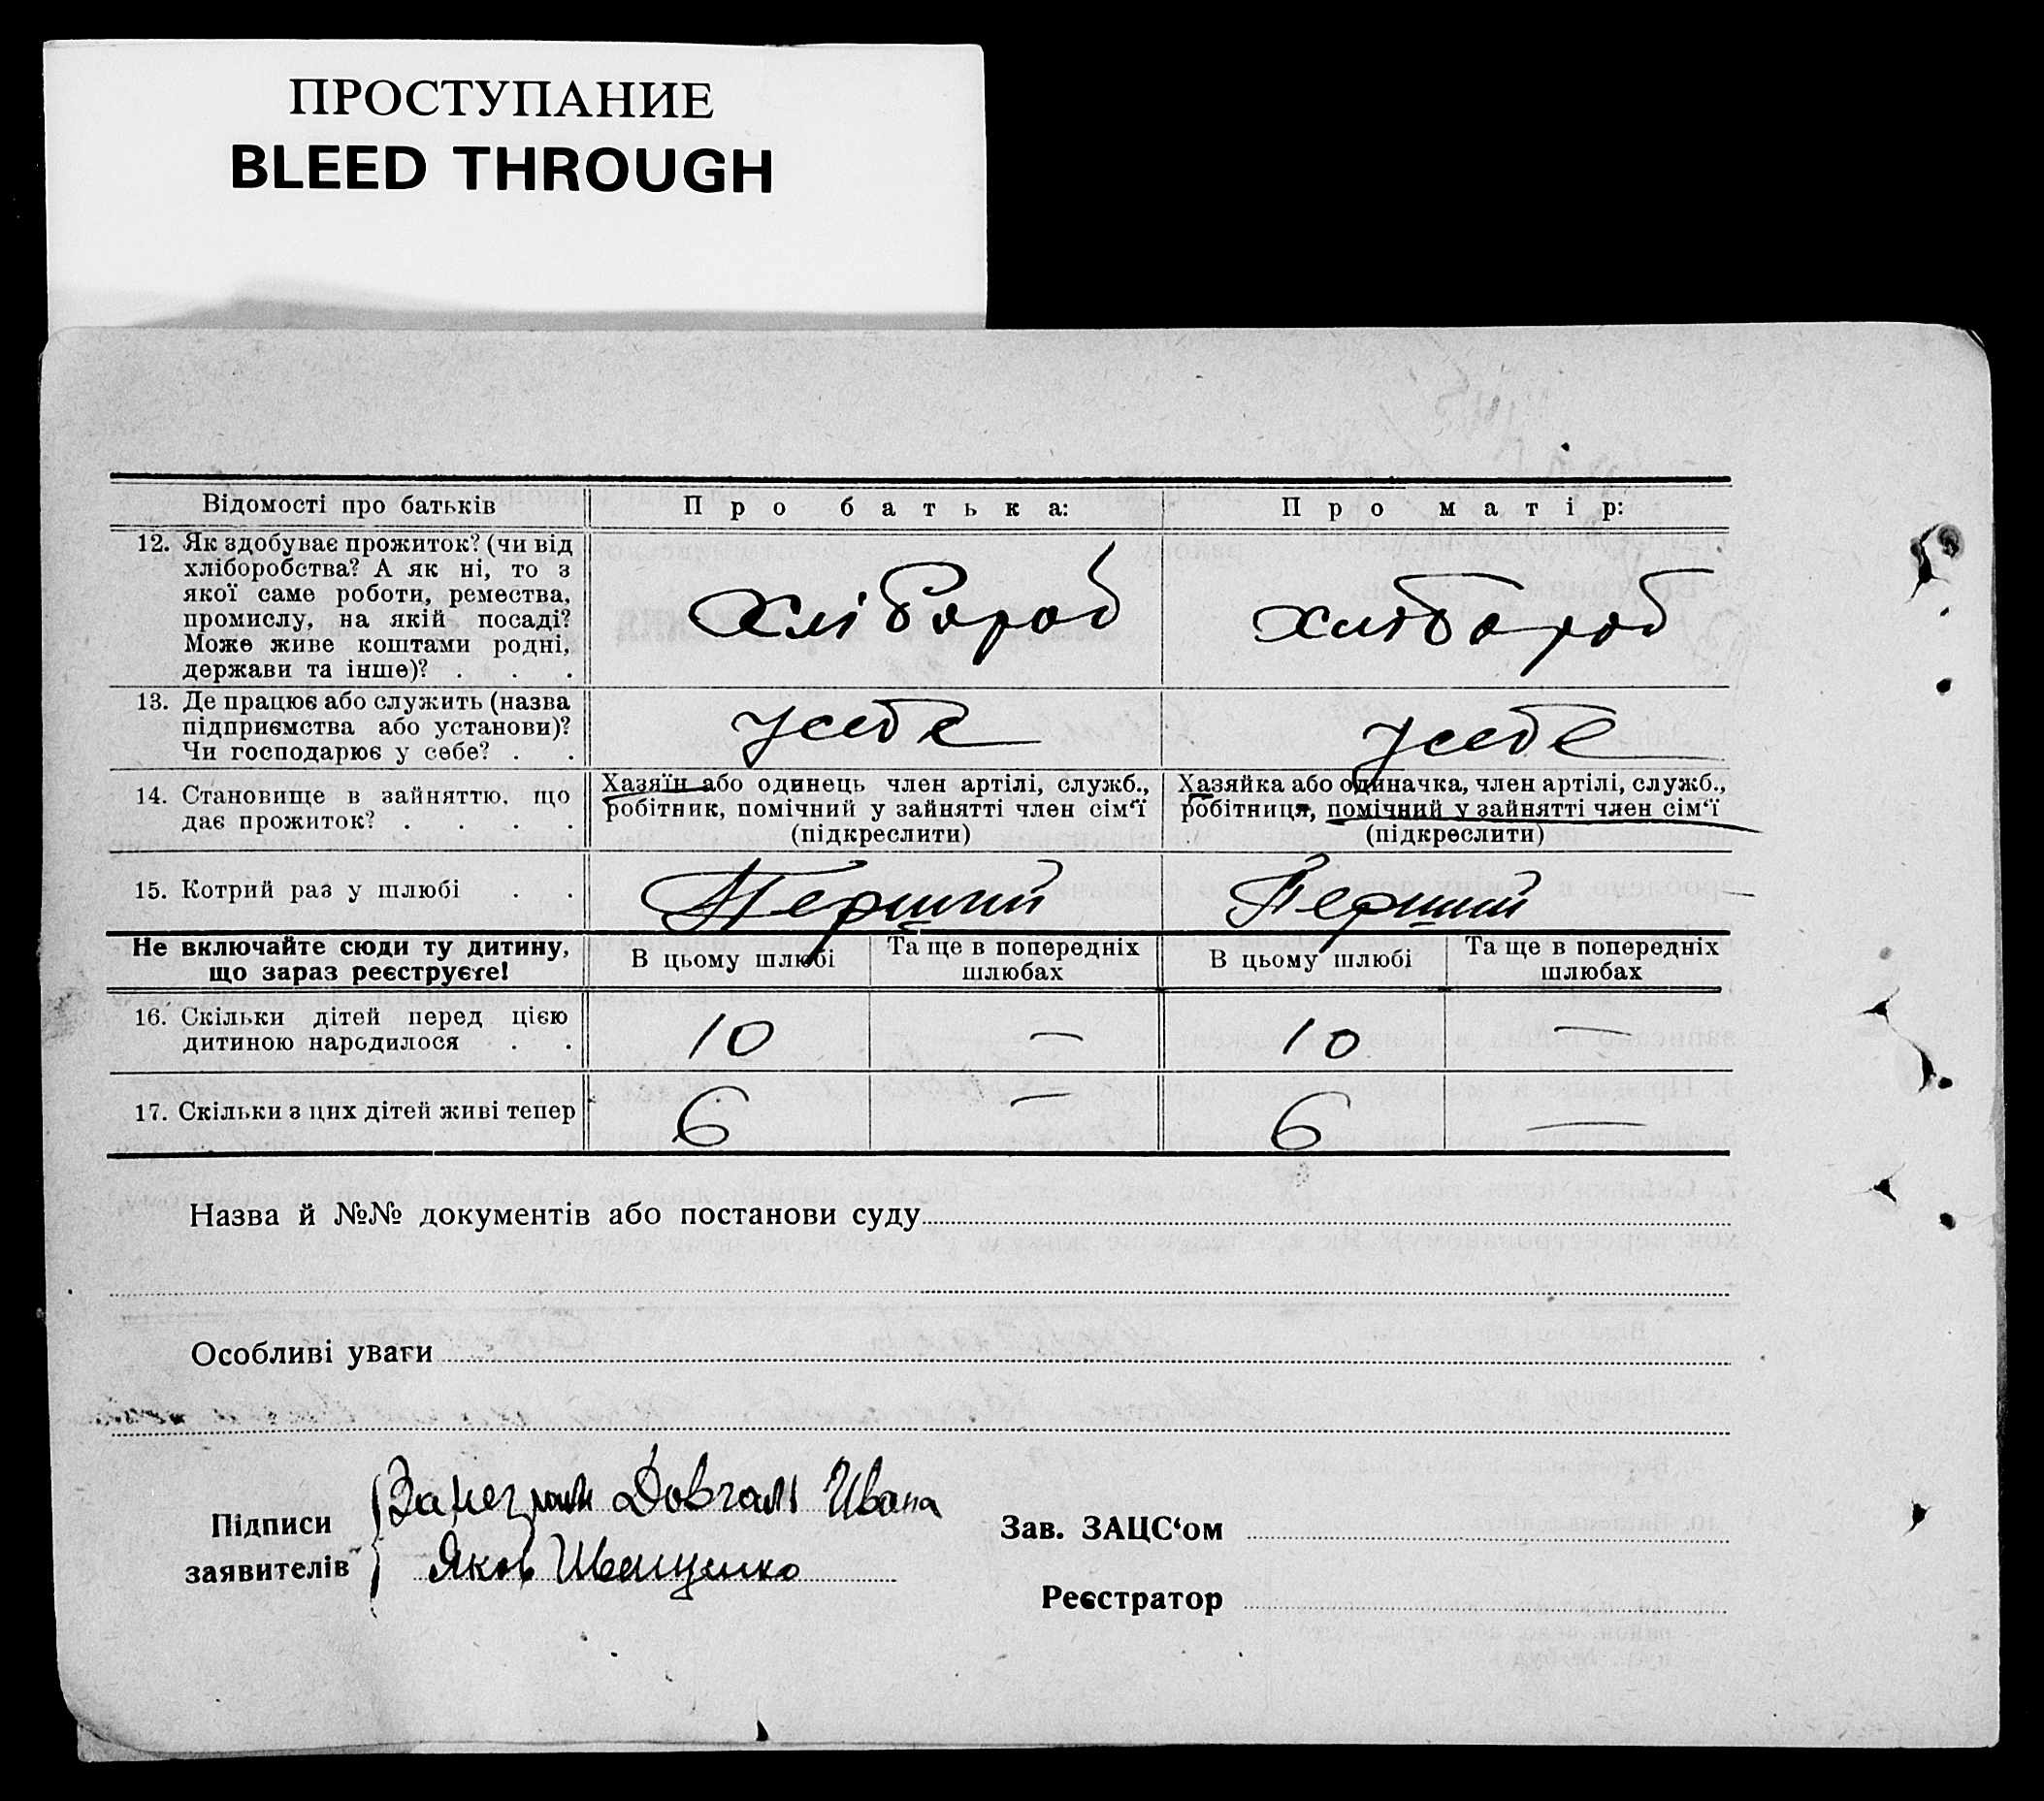 ПРОСТУПАНИЕ
BLEED THROUGH
Відомості про батьків
Про батька:
Про матір:
12. Як здобуває прожиток? (чи від
хліборобства? А як ні, то з
якої саме роботи, ремества,
промислу, на якій посаді?
Може живе коштами родні,
держави та інше)? . . .
Хлібороб
хлібороб
13. Де працює або служить (назва
підприємства або установи)?
Чи господарює у себе? . .
у себе
у себе
14. Становище в зайняттю, що
дає прожиток? . . . .
Хазяїн або одинець член артілі, служб.,
робітник, помічний у зайнятті член сім‘ї
(підкреслити)
Хазяйка або одиначка, член артілі, служб.,
робітниця, помічний у зайнятті член сім‘ї
(підкреслити)
15. Котрий раз у шлюбі . .
Перший
Перший
Не включайте сюди ту дитину,
що зараз реєструєте!
В цьому шлюбі
Та ще в попередніх
шлюбах
В цьому шлюбі
Та ще в попередніх
шлюбах
16. Скільки дітей перед цією
дитиною народилося . .
10
—
10
—
17. Скільки з цих дітей живі тепер
6
—
6
—
Назва й №№ документів або постанови суду
Особливі уваги
Підписи
заявителів
Довгаль Ивана
Яков Иващенко
Зав. ЗАЦС‘ом
Реєстратор